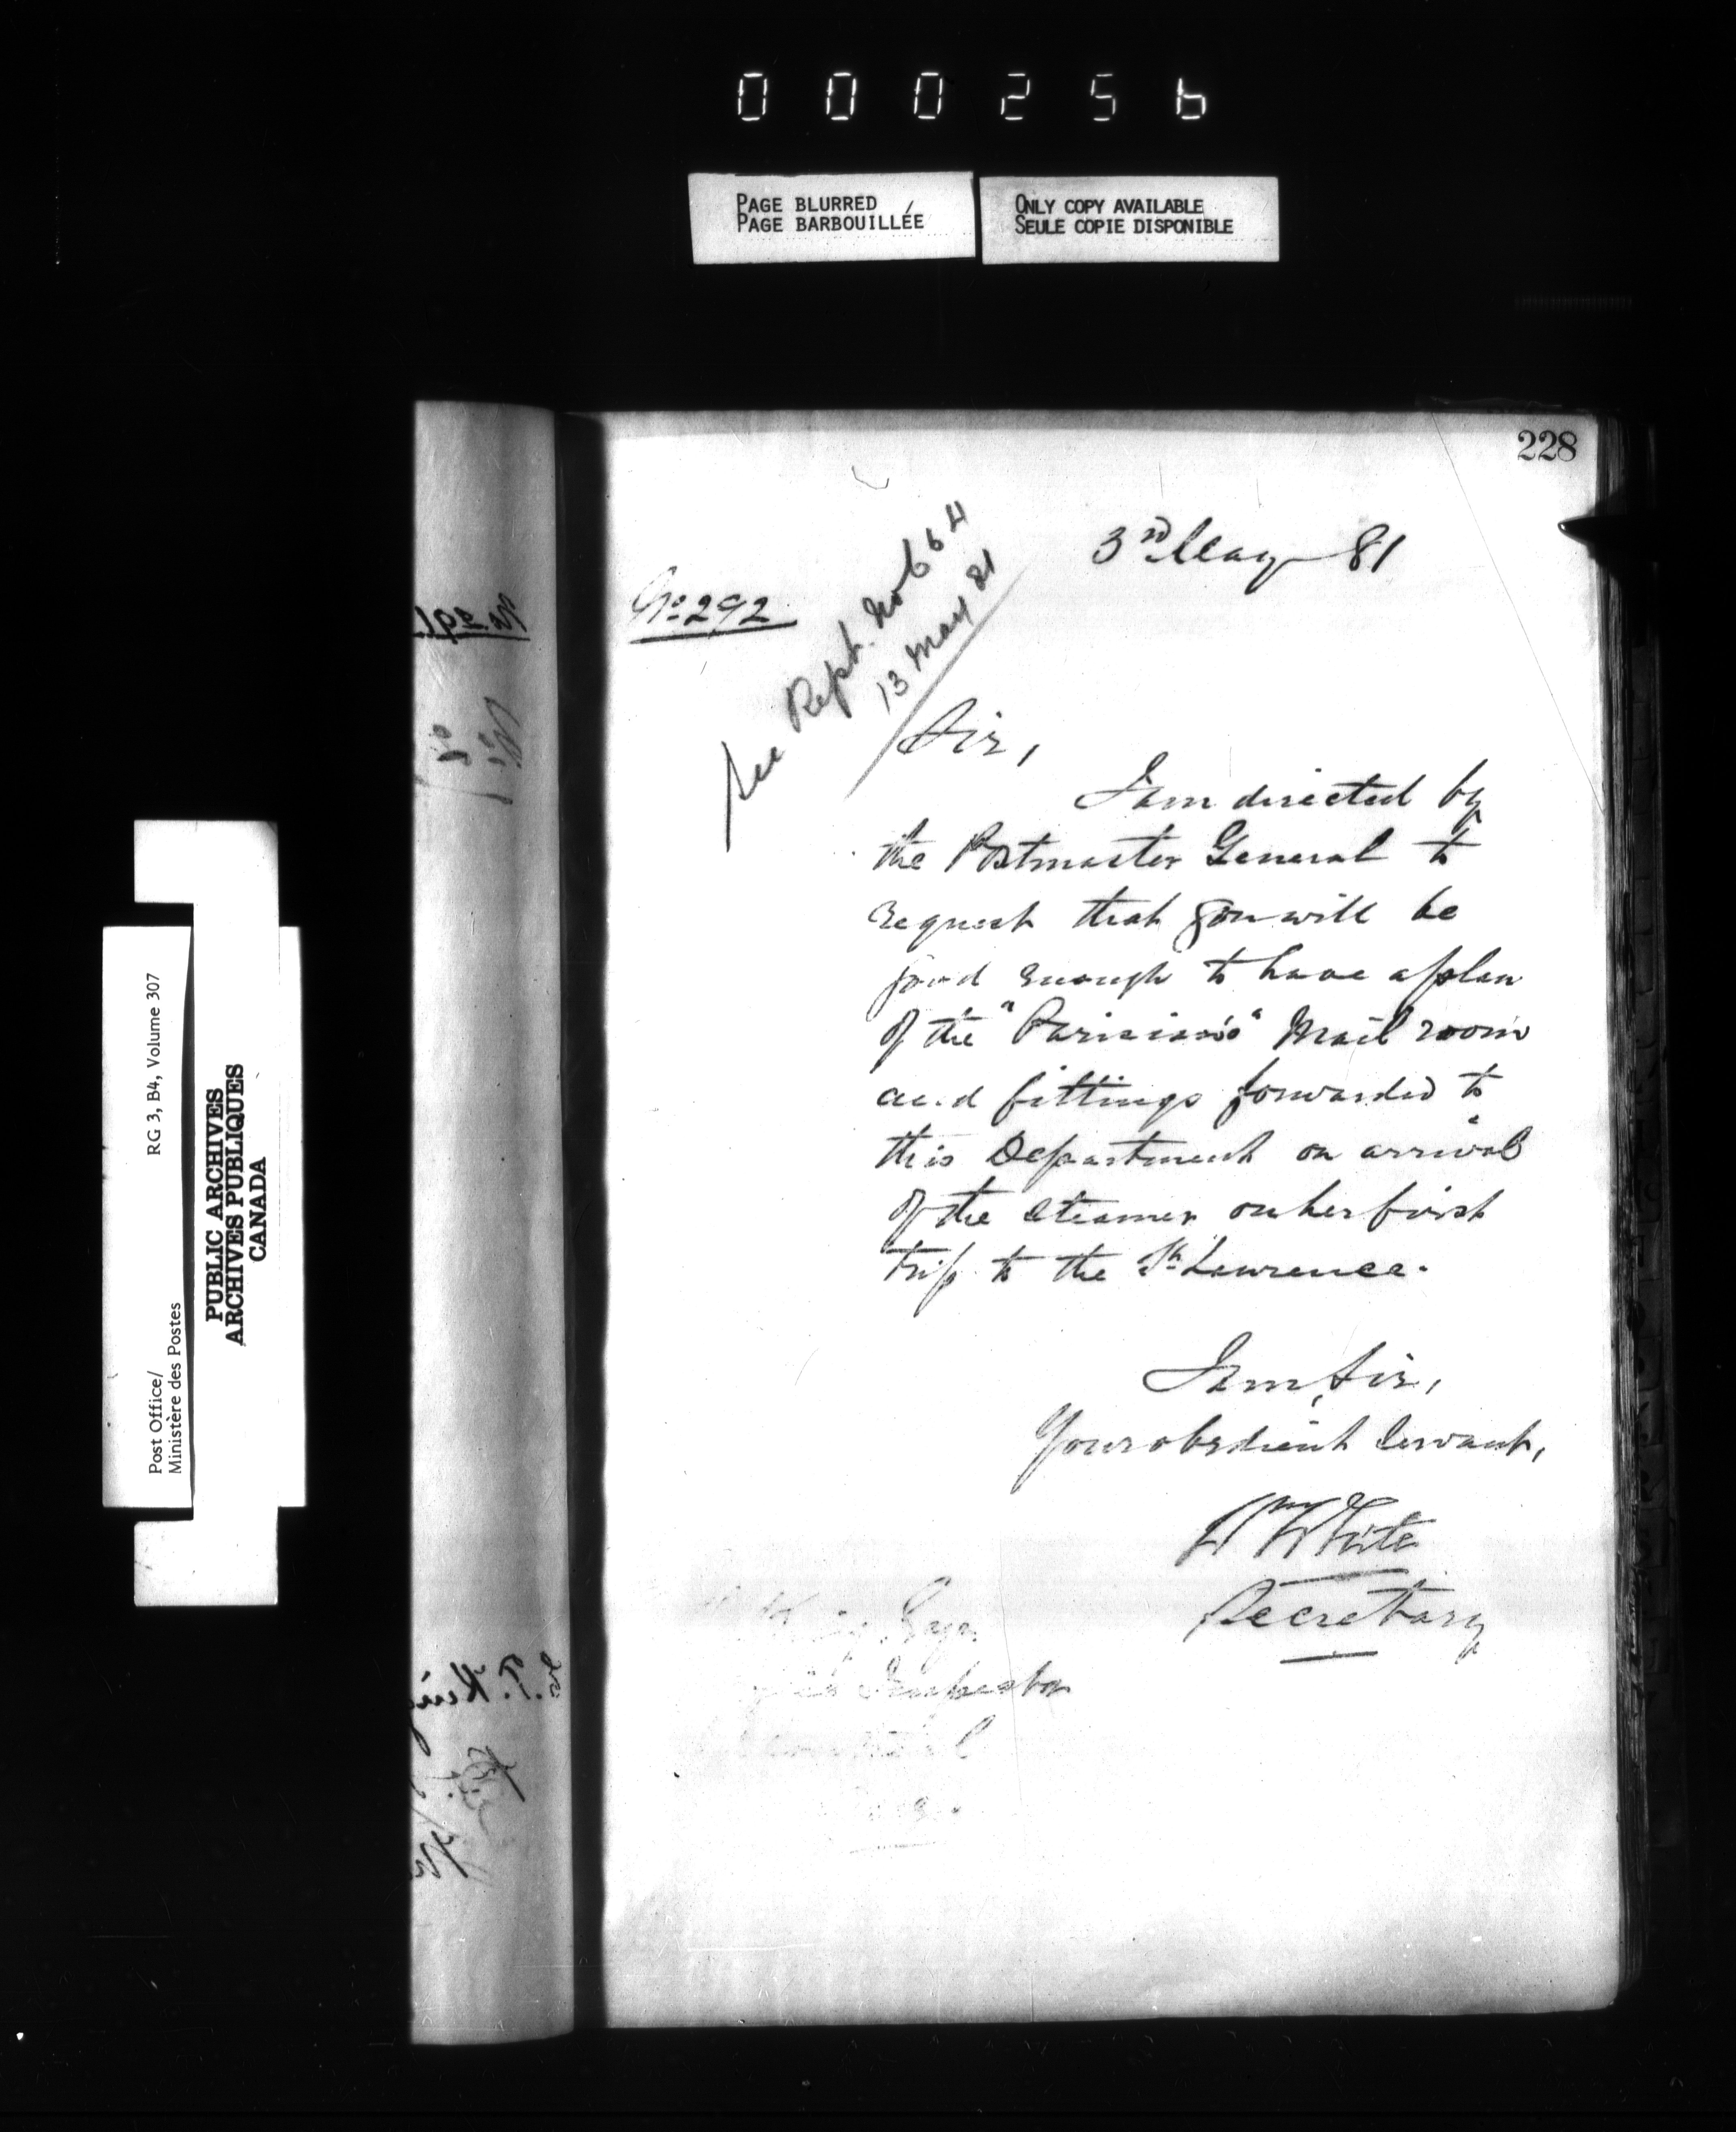 000256
PAGE BLURRED
PAGE BARBOUILLÉE
ONLY COPY AVAILABLE
SEULE COPIE DISPONIBLE
Post Office/
Ministère des Postes
RG 3, B4, Volume 307
PUBLIC ARCHIVES
ARCHIVES PUBLIQUES
CANADA
228
3rd May 81
No 292
See Rept. No 664
13 May 81
Sir,
I am directed by
the Postmaster General to
request that you will be
good enough to have a plan
of the "Parisian's" Mail room
and fittings forwarded to
this Department on arrival
of the steamer on her first
trip to the St. Lawrence.
I am, Sir,
Your obedient Servant,
Wm White
Secretary
King Esqr
Inspector